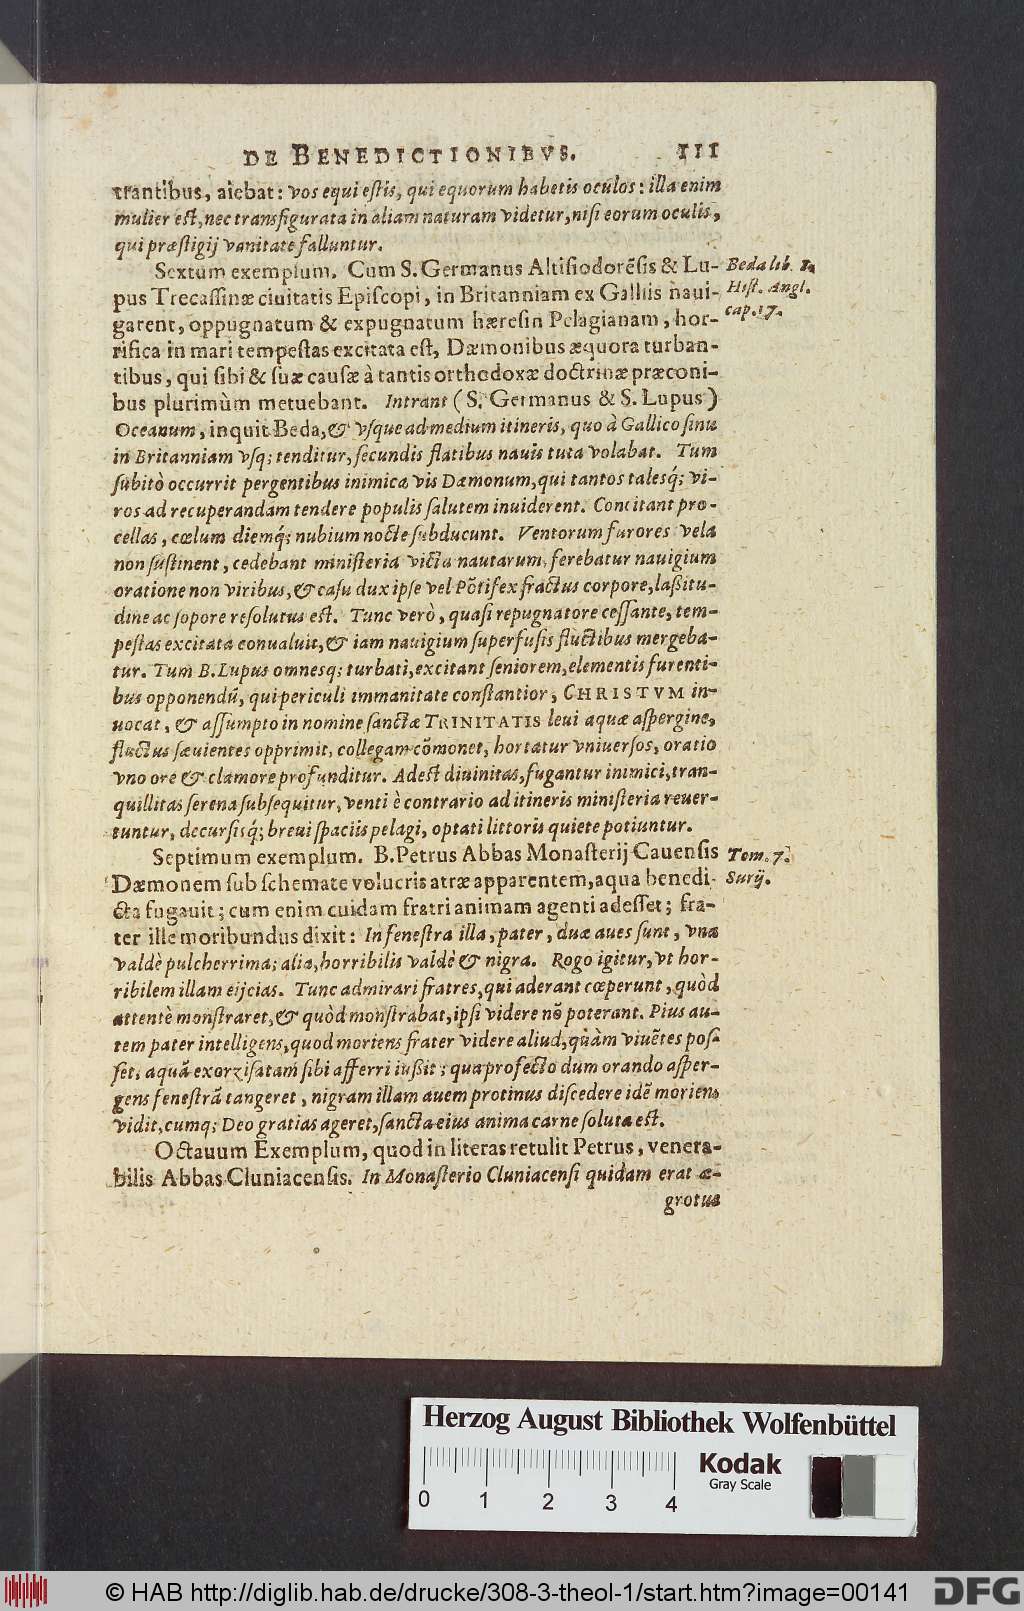 DE BENEDICTIONIBVS. 111
trantibus, aiebat: vos equi estis, qui equorum habetis oculos: illa enim
mulier est, nec transfigurata in aliam naturam videtur, nisi eorum oculis,
qui præstigij vanitate falluntur.
Sextum exemplum. Cum S. Germanus Altisiodorẽsis & Lu-
pus Trecassinæ ciuitatis Episcopi, in Britanniam ex Galliis naui-
garent, oppugnatum & expugnatum hæresin Pelagianam, hor-
rifica in mari tempestas excitata est, Dæmonibus æquora turban-
tibus, qui sibi & suæ causæ à tantis orthodoxæ doctrinæ præconi-
bus plurimùm metuebant. Intrant (S. Germanus & S. Lupus)
Oceanum, inquit Beda, & vsque ad medium itineris, quo à Gallico sinu
in Britanniam vsq; tenditur, secundis flatibus nauis tuta volabat. Tum
subitò occurrit pergentibus inimica vis Dæmonum, qui tantos talesq́; vi-
ros ad recuperandam tendere populis salutem inuiderent. Concitant pro-
cellas, cœlum diemq́; nubium nocte subducunt. Ventorum furores vela
non sustinent, cedebant ministeria victa nautarum, ferebatur nauigium
oratione non viribus, & casu dux ipse vel Põtifex fractus corpore, laßitu-
dine ac sopore resolutus est. Tunc verò, quasi repugnatore cessante, tem-
pestas excitata conualuit, & iam nauigium superfusis fluctibus mergeba-
tur. Tum B. Lupus omnesq; turbati, excitant seniorem, elementis furenti-
bus opponendũ, qui periculi immanitate constantior, CHRISTVM in-
uocat, & assumpto in nomine sanctæ TRINITATIS leui aquæ aspergine,
fluctus sæuientes opprimit, collegam cõmonet, hortatur vniuersos, oratio
vno ore & clamore profunditur. Adest diuinitas, fugantur inimici, tran-
quillitas serena subsequitur, venti è contrario ad itineris ministeria reuer-
tuntur, decursisq́; breui spaciis pelagi, optati littoris quiete potiuntur.
Septimum exemplum. B. Petrus Abbas Monasterij Cauensis
Dæmonem sub schemate volucris atræ apparentem, aqua benedi-
cta fugauit; cum enim cuidam fratri animam agenti adesset; fra-
ter ille moribundus dixit: In fenestra illa, pater, duæ aues sunt, vna
valdè pulcherrima; alia, horribilis valdè & nigra. Rogo igitur, vt hor-
ribilem illam eijcias. Tunc admirari fratres, qui aderant cœperunt, quòd
attentè monstraret, & quòd monstrabat, ipsi videre nõ poterant. Pius au-
tem pater intelligens, quod moriens frater videre aliud, quàm viuẽtes pos-
set, aquã exorzisatam sibi afferri iußit; qua profecto dum orando asper-
gens fenestrã tangeret, nigram illam auem protinus discedere idẽ moriens
vidit, cumq; Deo gratias ageret, sancta eius anima carne soluta est.
Octauum Exemplum, quod in literas retulit Petrus, venera-
bilis Abbas Cluniacensis. In Monasterio Cluniacensi quidam erat æ-
grotus
Beda lib. 1.
Hist. Angl.
cap. 17.
Tom. 7.
Surij.
Herzog August Bibliothek Wolfenbüttel
Kodak
Gray Scale
0 1 2 3 4
© HAB http://diglib.hab.de/drucke/308-3-theol-1/start.htm?image=00141
DFG